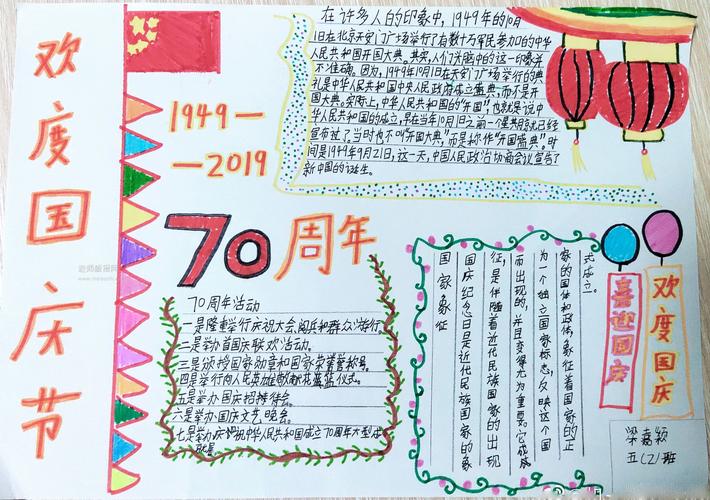 欢度国庆节
1949—
—2019
70周年
在许多人的印象中，1949年的10月
1日在北京天安门广场举行了有数十万军民参加的中华
人民共和国开国大典。其实，人们头脑中的这一印象并
不准确。因为，1949年10月1日在天安门广场举行的典
礼是中华人民共和国中央人民政府成立盛典，而不是开
国大典。实际上，中华人民共和国的"开国"，也就是说中
华人民共和国的成立，早在当年10月1日之前一个星期就已经
宣布过了。当时也不叫"开国大典"，而是称作"开国盛典"。时
间是1949年9月21日，这一天，中国人民政治协商会议宣告了
新中国的诞生。
70周年活动
一是隆重举行庆祝大会、阅兵和群众游行。
二是举办首国庆联欢活动。
三是颁授国家勋章和国家荣誉称号。
四是举行向人民英雄敬献花篮仪式。
五是举办国庆招待会。
六是举办国庆文艺晚会。
七是举办庆祝中华人民共和国成立70周年大型成
就展
国家象征
国庆纪念日是近代民族国家的
征，是伴随着近代民族国家的出现
而出现的，并且变得尤为重要。它成
为一个独立国家标志，反映这个国
家的国体和政体，象征着国家的正
式成立。
喜迎国庆
欢度国庆
梁嘉颖
五（2）班